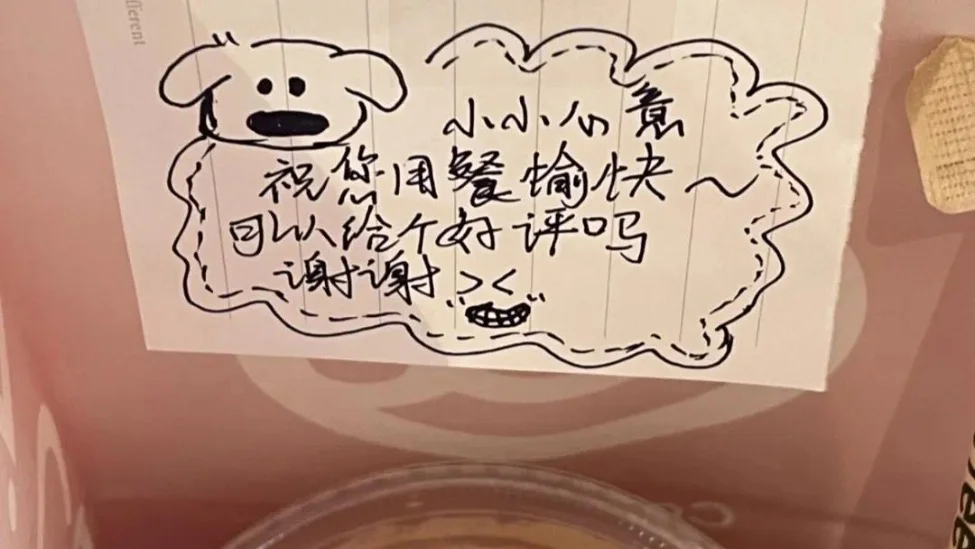 fferent
小小心意
祝您用餐愉快~
可以给个好评吗
谢谢 ><